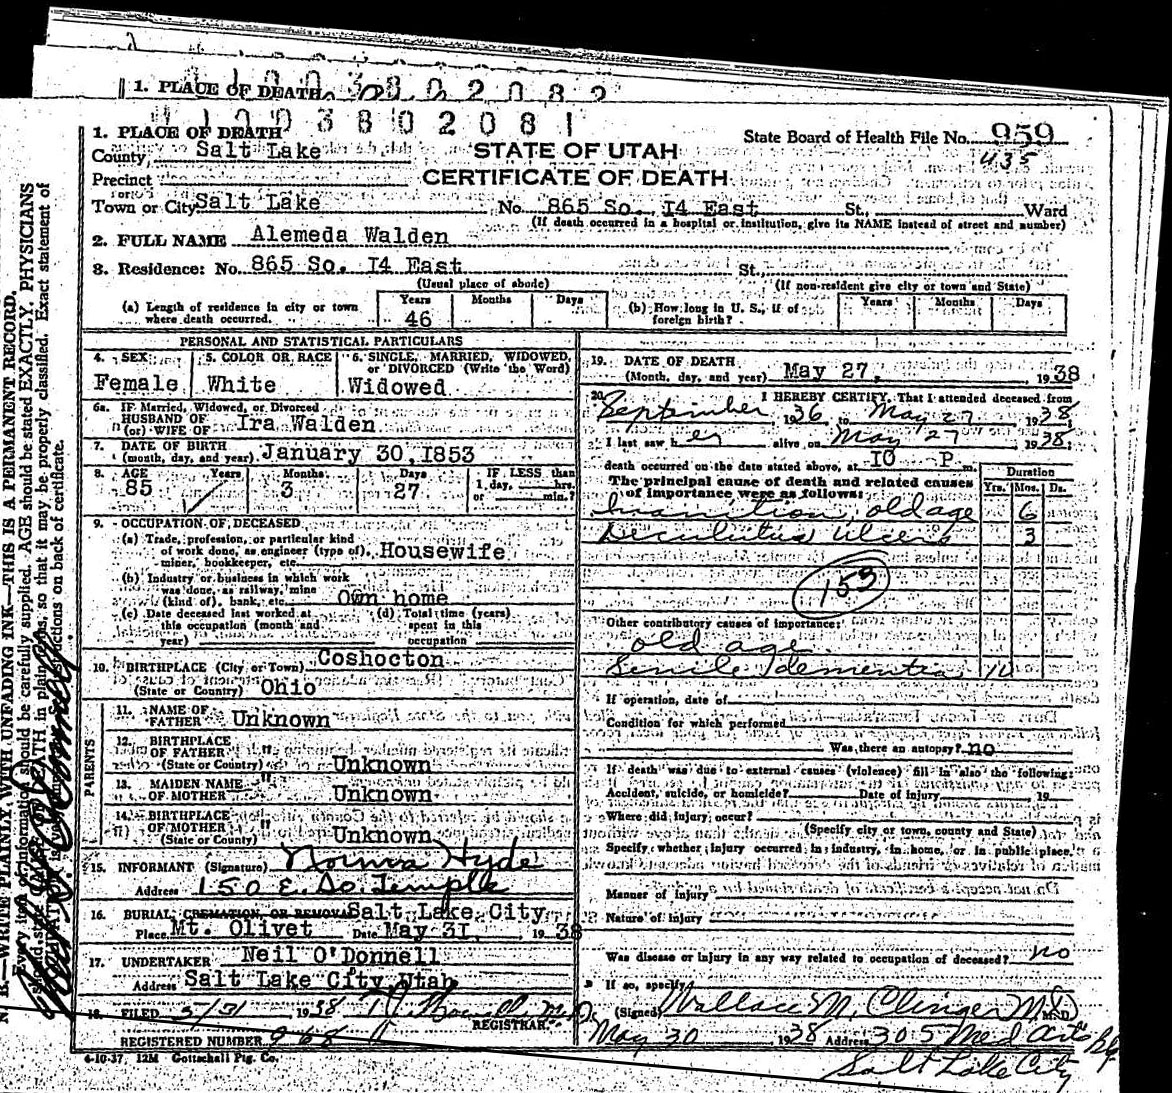 1. PLACE OF DEATH
11003802081
1. PLACE OF DEATH
State Board of Health File No. 959
435
County, Salt Lake
STATE OF UTAH
CERTIFICATE OF DEATH
Precinct
or
Town or City Salt Lake No. 865 So. I4 East St., Ward
(If death occurred in a hospital or institution, give its NAME instead of street and number)
2. FULL NAME Alemeda Walden
3. Residence: No. 865 So. I4 East St.,
(Usual place of abode) (If non-resident give city or town and State)
(a) Length of residence in city or town where death occurred. Years 46 Months Days
(b) How long in U. S., if of foreign birth? Years Months Days
PERSONAL AND STATISTICAL PARTICULARS
4. SEX Female
5. COLOR OR RACE White
6. SINGLE, MARRIED, WIDOWED, or DIVORCED (Write the Word) Widowed
6a. IF Married, Widowed, or Divorced
HUSBAND OF
(or) WIFE OF Ira Walden
7. DATE OF BIRTH
(month, day, and year) January 30, I853
8. AGE Years Months Days IF LESS than
85 3 27 1 day, hrs.
or min.?
9. OCCUPATION OF DECEASED
(a) Trade, profession, or particular kind
of work done, as engineer (type of), Housewife
miner, bookkeeper, etc.
(b) Industry or business in which work
was done, as railway, mine
(kind of), bank, etc. Own home
(c) Date deceased last worked at this occupation (month and year)
(d) Total time (years) spent in this occupation
10. BIRTHPLACE (City or Town) Coshocton
(State or Country) Ohio
PARENTS
11. NAME OF
FATHER Unknown
12. BIRTHPLACE
OF FATHER "
(State or Country) Unknown
13. MAIDEN NAME "
OF MOTHER Unknown
14. BIRTHPLACE
OF MOTHER "
(State or Country) Unknown
15. INFORMANT (Signature) Norma Hyde
Address 150 E. So. Temple
16. BURIAL, CREMATION, OR REMOVAL Salt Lake City
Place Mt. Olivet Date May 3I, 1938
17. UNDERTAKER Neil O'Donnell
Address Salt Lake City, Utah
18. FILED 5/31 1938
REGISTRAR.
REGISTERED NUMBER 968
4-10-37. 12M Gottschall Ptg. Co.
19. DATE OF DEATH
(Month, day, and year) May 27, 1938
20. I HEREBY CERTIFY, That I attended deceased from
September 1936 to May 27 1938,
I last saw her alive on May 27 1938,
death occurred on the date stated above, at I0 P m.
The principal cause of death and related causes
of importance were as follows:
Duration
Yrs. Mos. Ds.
Inanition, old age 6
Decubitus Ulcers 3
153
Other contributory causes of importance:
old age
Senile dementia
If operation, date of
Condition for which performed
Was there an autopsy? no
If death was due to external causes (violence) fill in also the following:
Accident, suicide, or homicide? Date of injury 19
Where did injury occur?
(Specify city or town, county and State)
Specify whether injury occurred in industry, in home, or in public place.
Manner of injury
Nature of injury
Was disease or injury in any way related to occupation of deceased? no
If so, specify
(Signed) Wallace M. Clinger M.D. M. D.
May 30 1938 Address 305 Med Arts Bg.
Salt Lake City
N. B.—WRITE PLAINLY, WITH UNFADING INK—THIS IS A PERMANENT RECORD.
Every item of information should be carefully supplied. AGE should be stated EXACTLY. PHYSICIANS
should state CAUSE OF DEATH in plain terms, so that it may be properly classified. Exact statement of